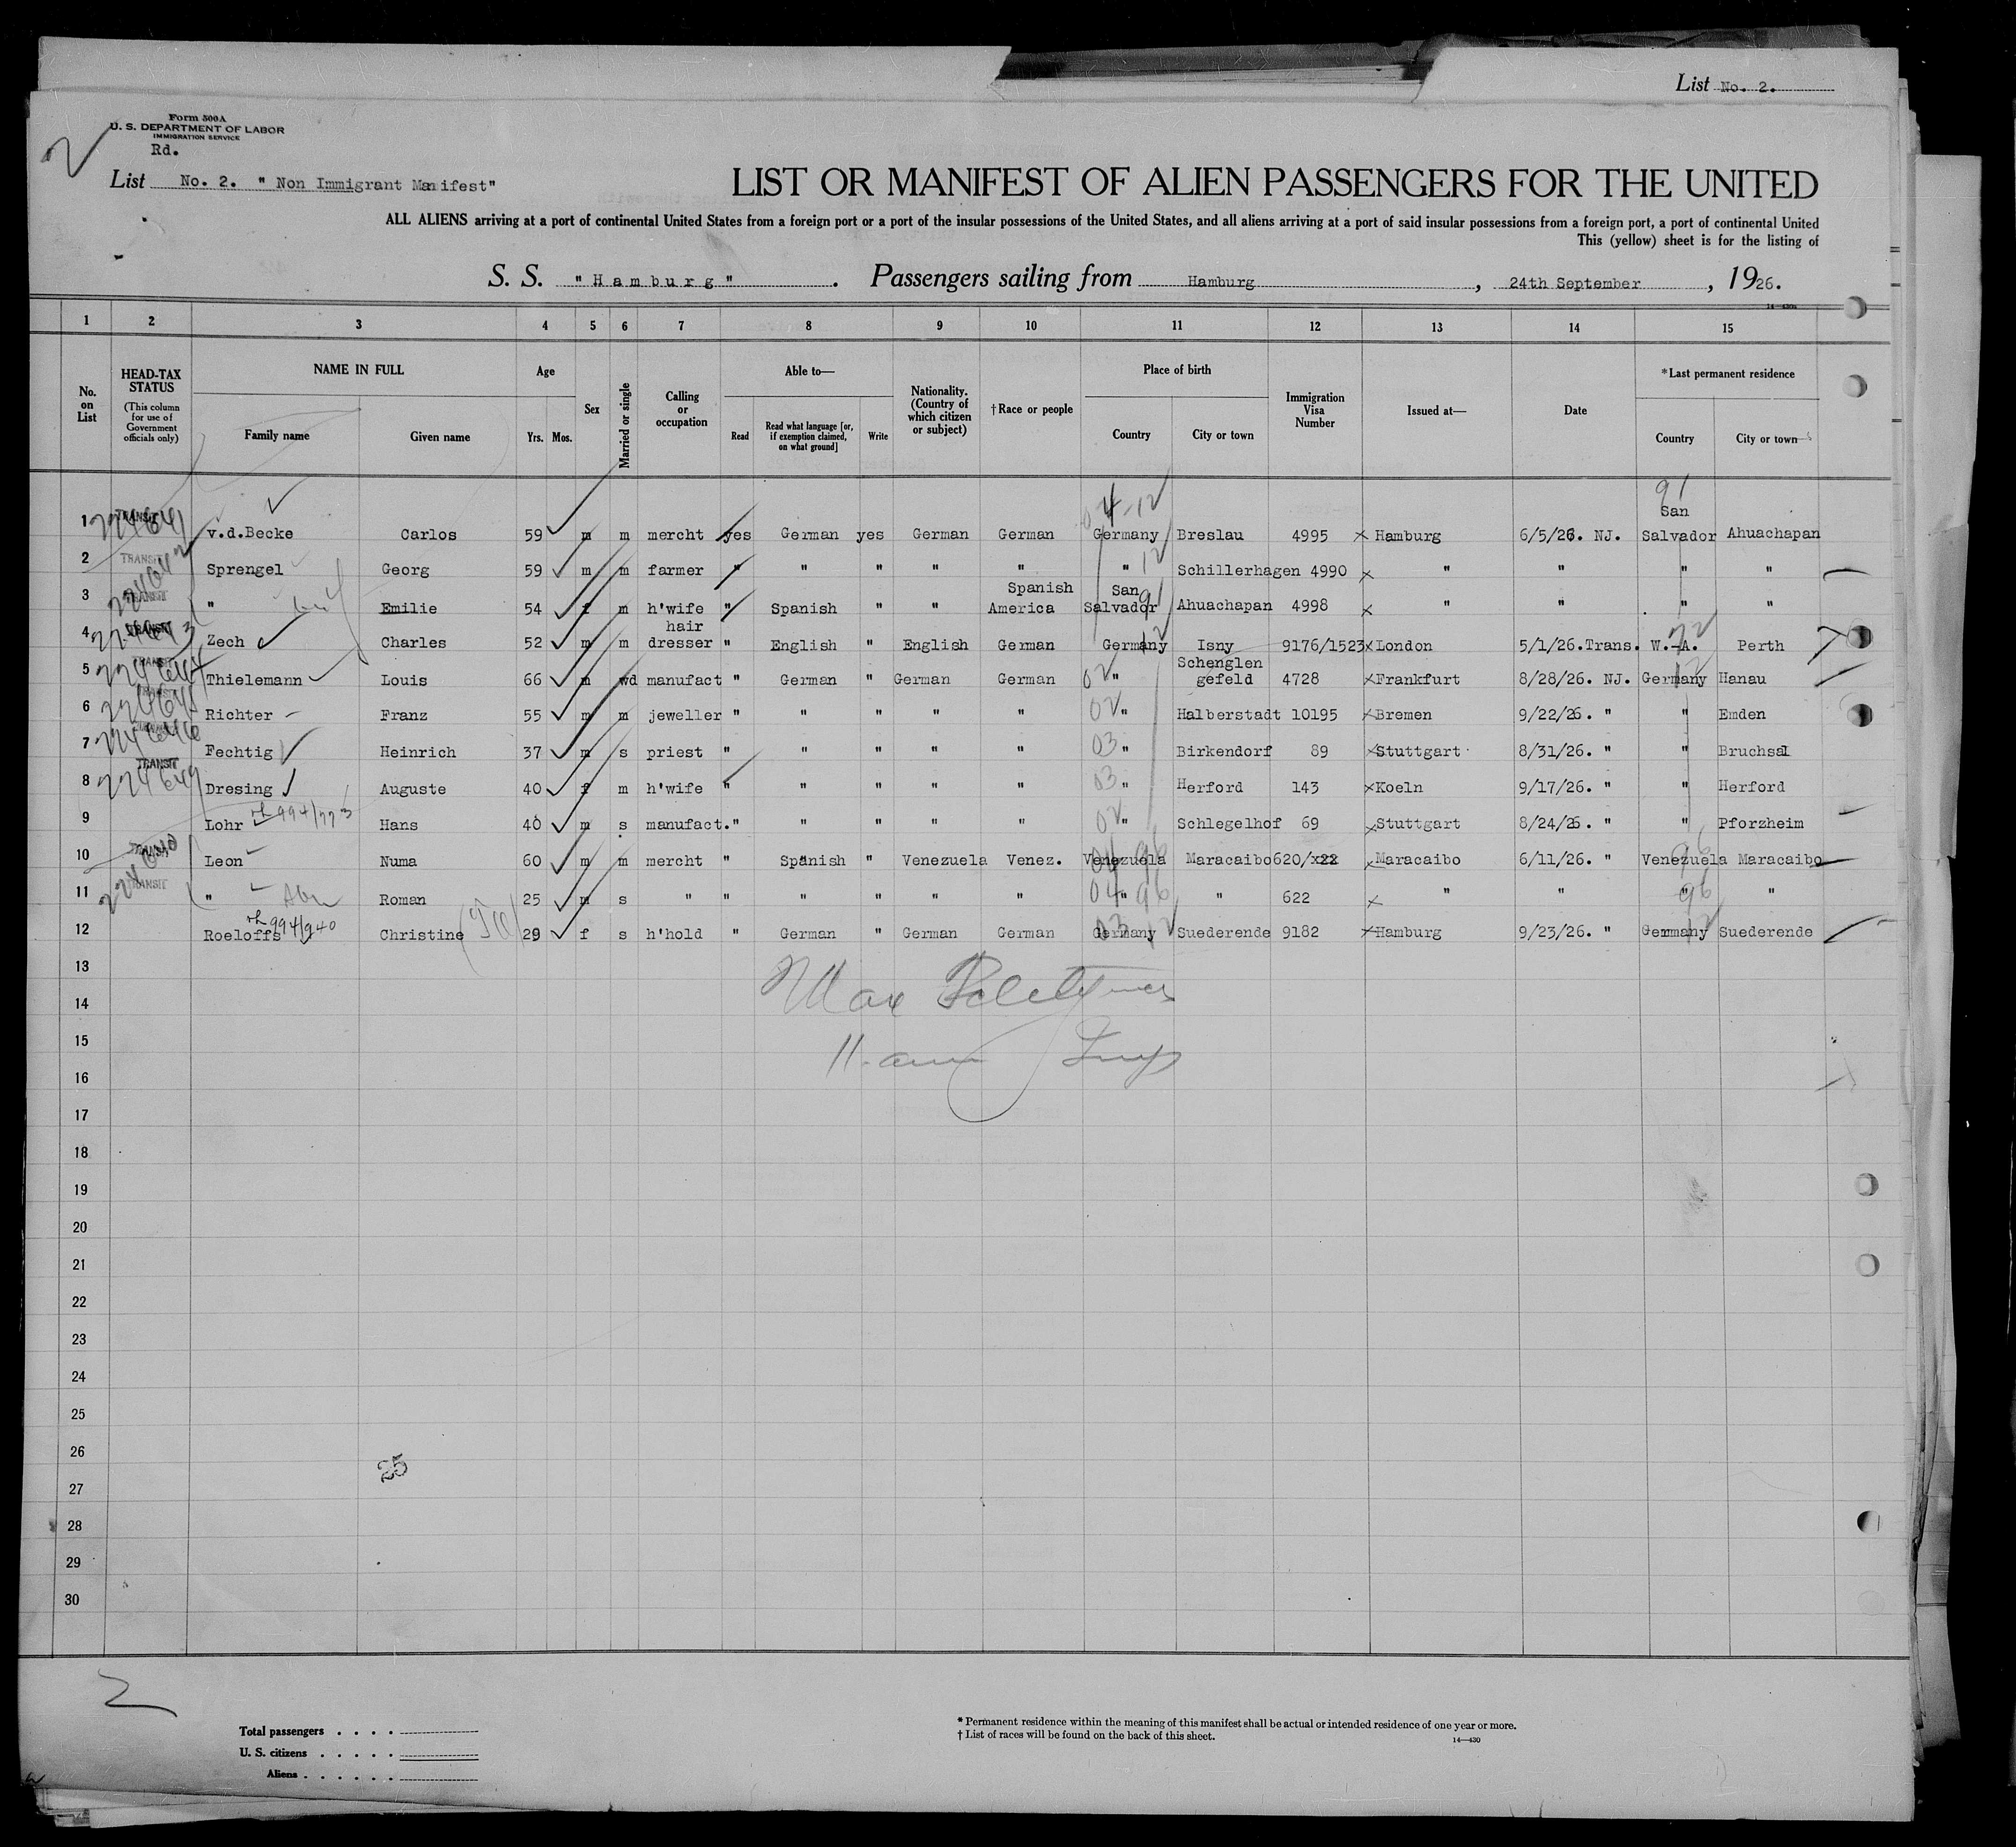 List No. 2.
Form 500A
U. S. DEPARTMENT OF LABOR
IMMIGRATION SERVICE
Rd.
2
List No. 2. " Non Immigrant Manifest"
LIST OR MANIFEST OF ALIEN PASSENGERS FOR THE UNITED
ALL ALIENS arriving at a port of continental United States from a foreign port or a port of the insular possessions of the United States, and all aliens arriving at a port of said insular possessions from a foreign port, a port of continental United
This (yellow) sheet is for the listing of
S. S. " H a m b u r g " . Passengers sailing from Hamburg , 24th September , 1926.
14—430a
1 2 3 4 5 6 7 8 9 10 11 12 13 14 15
No. on List
HEAD-TAX STATUS
(This column for use of Government officials only)
NAME IN FULL
Family name Given name
Age
Yrs. Mos.
Sex
Married or single
Calling or occupation
Able to—
Read
Read what language [or, if exemption claimed, on what ground]
Write
Nationality. (Country of which citizen or subject)
†Race or people
Place of birth
Country City or town
Immigration Visa Number
Issued at—
Date
*Last permanent residence
Country City or town
04-12 91
San
1 TRANSIT 224641 v.d.Becke Carlos 59 m m mercht yes German yes German German Germany Breslau 4995 Hamburg 6/5/26. NJ. Salvador Ahuachapan
2 TRANSIT 224642 Sprengel Georg 59 m m farmer " " " " " " 12 Schillerhagen 4990 " " " "
Spanish San
3 TRANSIT " Emilie 54 f m h'wife " Spanish " " America Salvador 91 Ahuachapan 4998 " " " "
hair
4 TRANSIT 224643 Zech Charles 52 m m dresser " English " English German Germany 12 Isny 9176/1523 London 5/1/26.Trans. W.-A. Perth
Schenglen
5 TRANSIT 224644 Thielemann Louis 66 m wd manufact " German " German German 02 " gefeld 4728 Frankfurt 8/28/26. NJ. Germany 12 Hanau
6 TRANSIT 224645 Richter Franz 55 m m jeweller " " " " " 02 " Halberstadt 10195 Bremen 9/22/26. " " Emden
7 224646 Fechtig Heinrich 37 m s priest " " " " " 03 " Birkendorf 89 Stuttgart 8/31/26. " " Bruchsal
8 TRANSIT 224649 Dresing Auguste 40 f m h'wife " " " " " 03 " Herford 143 Koeln 9/17/26. " " Herford
9 Lohr 994/773 Hans 40 m s manufact. " " " " " 02 " Schlegelhof 69 Stuttgart 8/24/26. " " Pforzheim
10 TRANSIT Leon Numa 60 m m mercht " Spanish " Venezuela Venez. Venezuela 04 96 Maracaibo 620/xxx Maracaibo 6/11/26. " Venezuela 96 Maracaibo
11 TRANSIT " Roman 25 m s " " " " " " 04 " 96 " 622 " " " 96 "
12 Roeloffs 994/940 Christine 29 f s h'hold " German " German German Germany 03 12 Suederende 9182 Hamburg 9/23/26. " Germany 12 Suederende
13
14 Max
15
16
17
18
19
20
21
22
23
24
25
26
25
27
28
29
30
2
Total passengers . . . .
U. S. citizens . . . . .
Aliens . . . . . .
* Permanent residence within the meaning of this manifest shall be actual or intended residence of one year or more.
† List of races will be found on the back of this sheet.
14—430